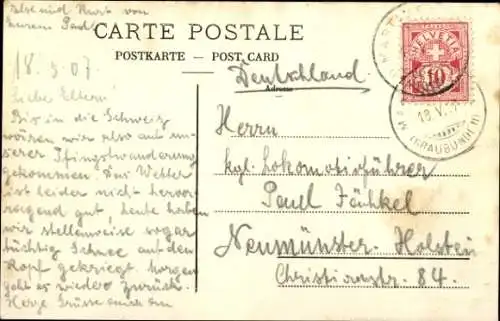 Else und Kurt von
Eurem Paul
CARTE POSTALE
POSTKARTE — POST CARD
Deutschland
Adresse
HELVETIA
10
MART
18.V.
(GRAUBÜNDEN)
18.5.07.
Liebe Eltern!
Bis in die Schweiz
wären wir also auf un-
serer Pfingstwanderung
gekommen Das Wetter
ist leider nicht hervor
ragend gut, heute haben
wir stellenweise sogar
tüchtig Schnee auf den
Kopf gekriegt. Morgen
geht es wieder zurück.
Herzl. Grüsse auch an
Herrn
kgl. Lokomotivführer
Paul Fänkel
Neumünster. Holstein
Christianstr. 84.